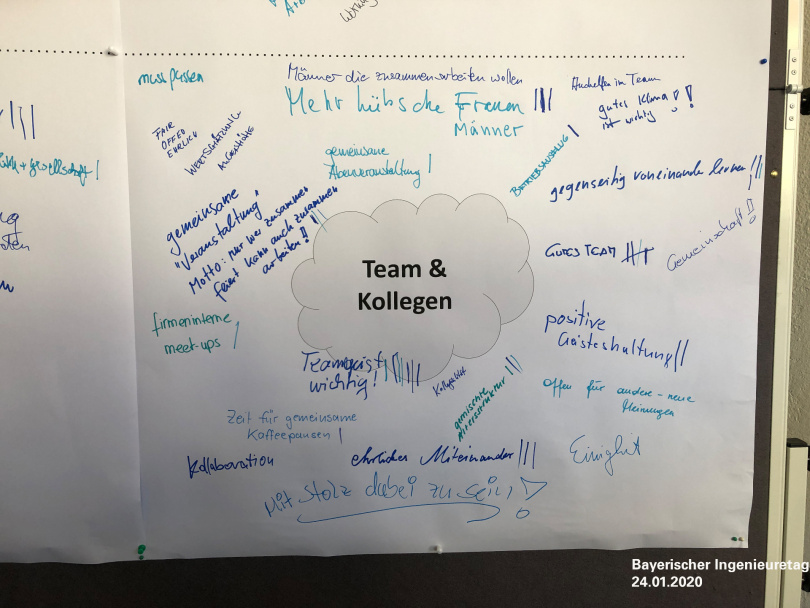 muss passen
Männer die zusammenarbeiten wollen
Mehr hübsche Frauen |||
Männer
Aushelfen im Team
gutes Klima !
ist wichtig !
FAIR
OFFEN
EHRLICH
WERTSCHÄTZUNG
AUGENHÖHE
gemeinsame
Abendveranstaltung |
BETRIEBSAUSFLUG |
gegenseitig voneinander lernen |||
gemeinsame
"Veranstaltung"
Motto: nur wer zusammen
feiert kann auch zusammen
arbeiten!!
Team &
Kollegen
GUTES TEAM
Gemeinschaft!
firmeninterne
meet-ups |
positive
Geisteshaltung ||
Teamgeist
wichtig!
Kollegialität
gemischte
Altersstruktur |||
offen für andere - neue
Meinungen
Zeit für gemeinsame
Kaffeepausen |
Kollaboration
ehrliches Miteinander |||
Einigkeit
Mit Stolz dabei zu sein!
+ Gesellschaft |
Bayerischer Ingenieuretag
24.01.2020